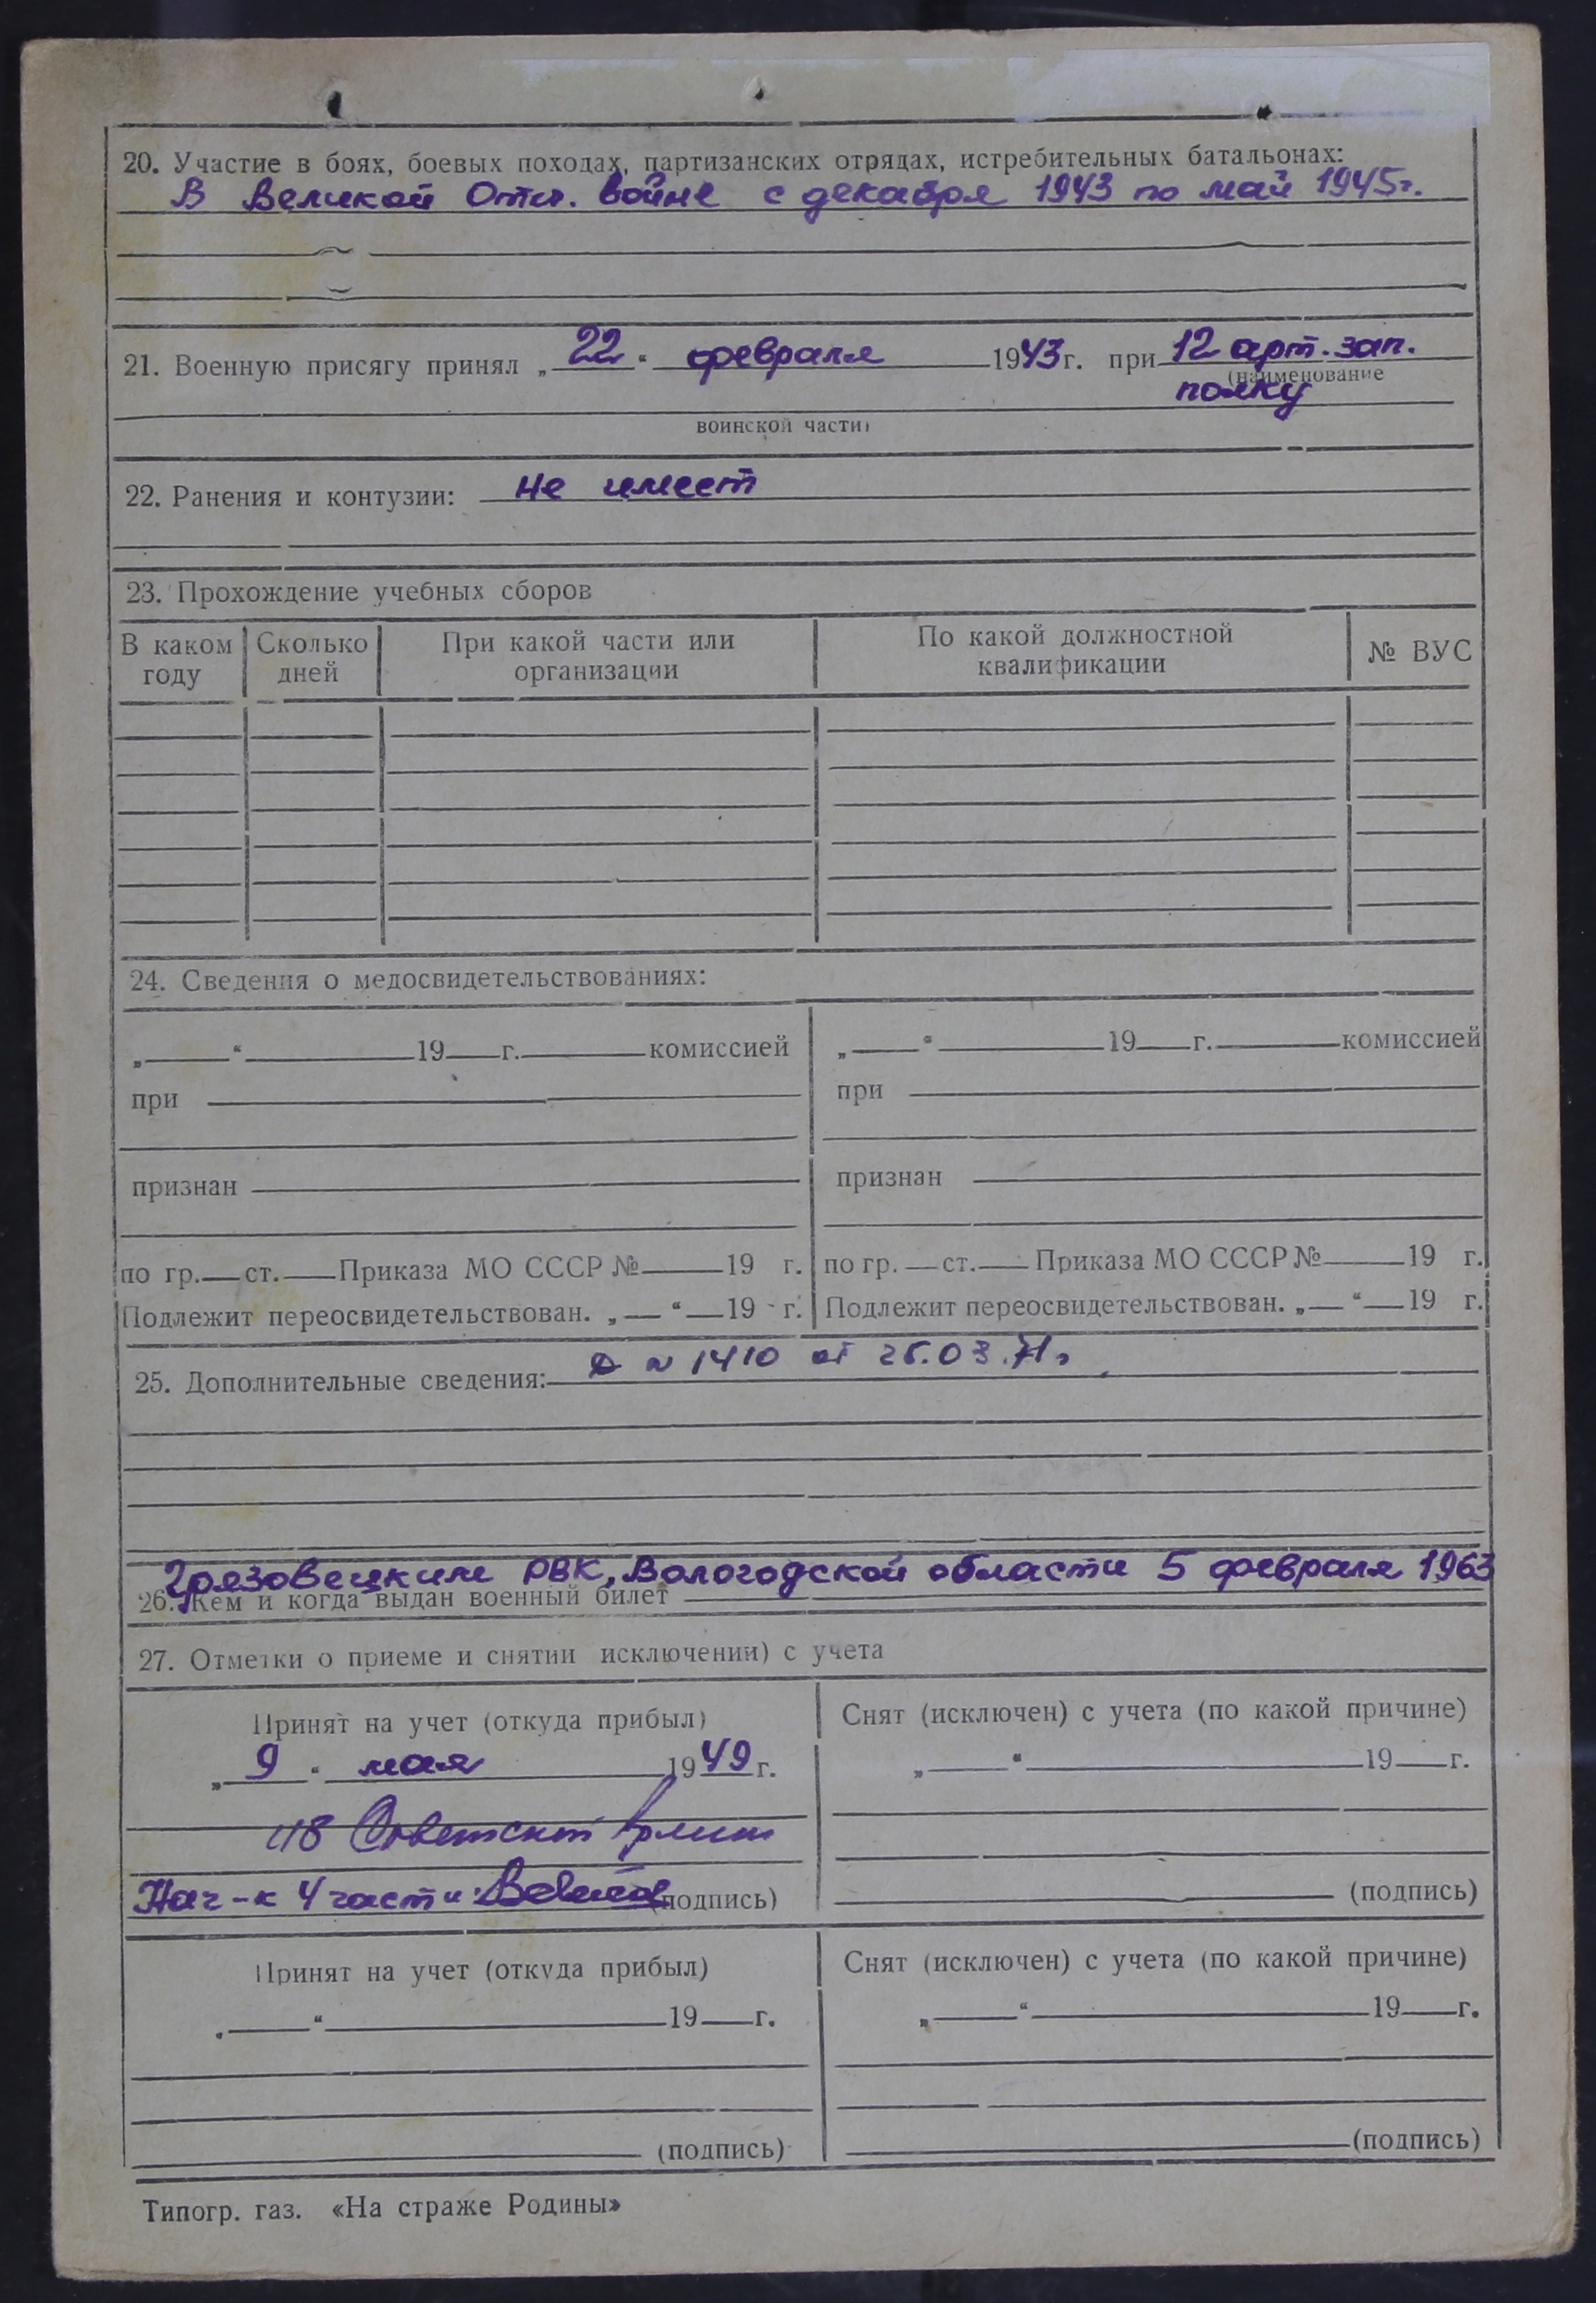 20. Участие в боях, боевых походах, партизанских отрядах, истребительных батальонах:
В Великой Отеч. войне с декабря 1943 по май 1945г.
21. Военную присягу принял „22“ февраля 1943г. при 12 арт. зап.
(наименование
полку
воинской части)
22. Ранения и контузии: не имеет
23. Прохождение учебных сборов
В каком году Сколько дней При какой части или организации По какой должностной квалификации № ВУС
24. Сведения о медосвидетельствованиях:
„ “ 19 г. комиссией „ “ 19 г. комиссией
при при
признан признан
по гр. ст. Приказа МО СССР № 19 г. по гр. ст. Приказа МО СССР № 19 г.
Подлежит переосвидетельствован. „ “ 19 г. Подлежит переосвидетельствован. „ “ 19 г.
25. Дополнительные сведения: № 1410 от 25.03.71г
Грязовецким РВК, Вологодской области 5 февраля 1963
26. Кем и когда выдан военный билет
27. Отметки о приеме и снятии исключении) с учета
Принят на учет (откуда прибыл) Снят (исключен) с учета (по какой причине)
„9“ мая 1949г. „ “ 19 г.
из Советской Армии
Нач-к 4 части (подпись) (подпись)
Принят на учет (откуда прибыл) Снят (исключен) с учета (по какой причине)
„ “ 19 г. „ “ 19 г.
(подпись) (подпись)
Типогр. газ. «На страже Родины»